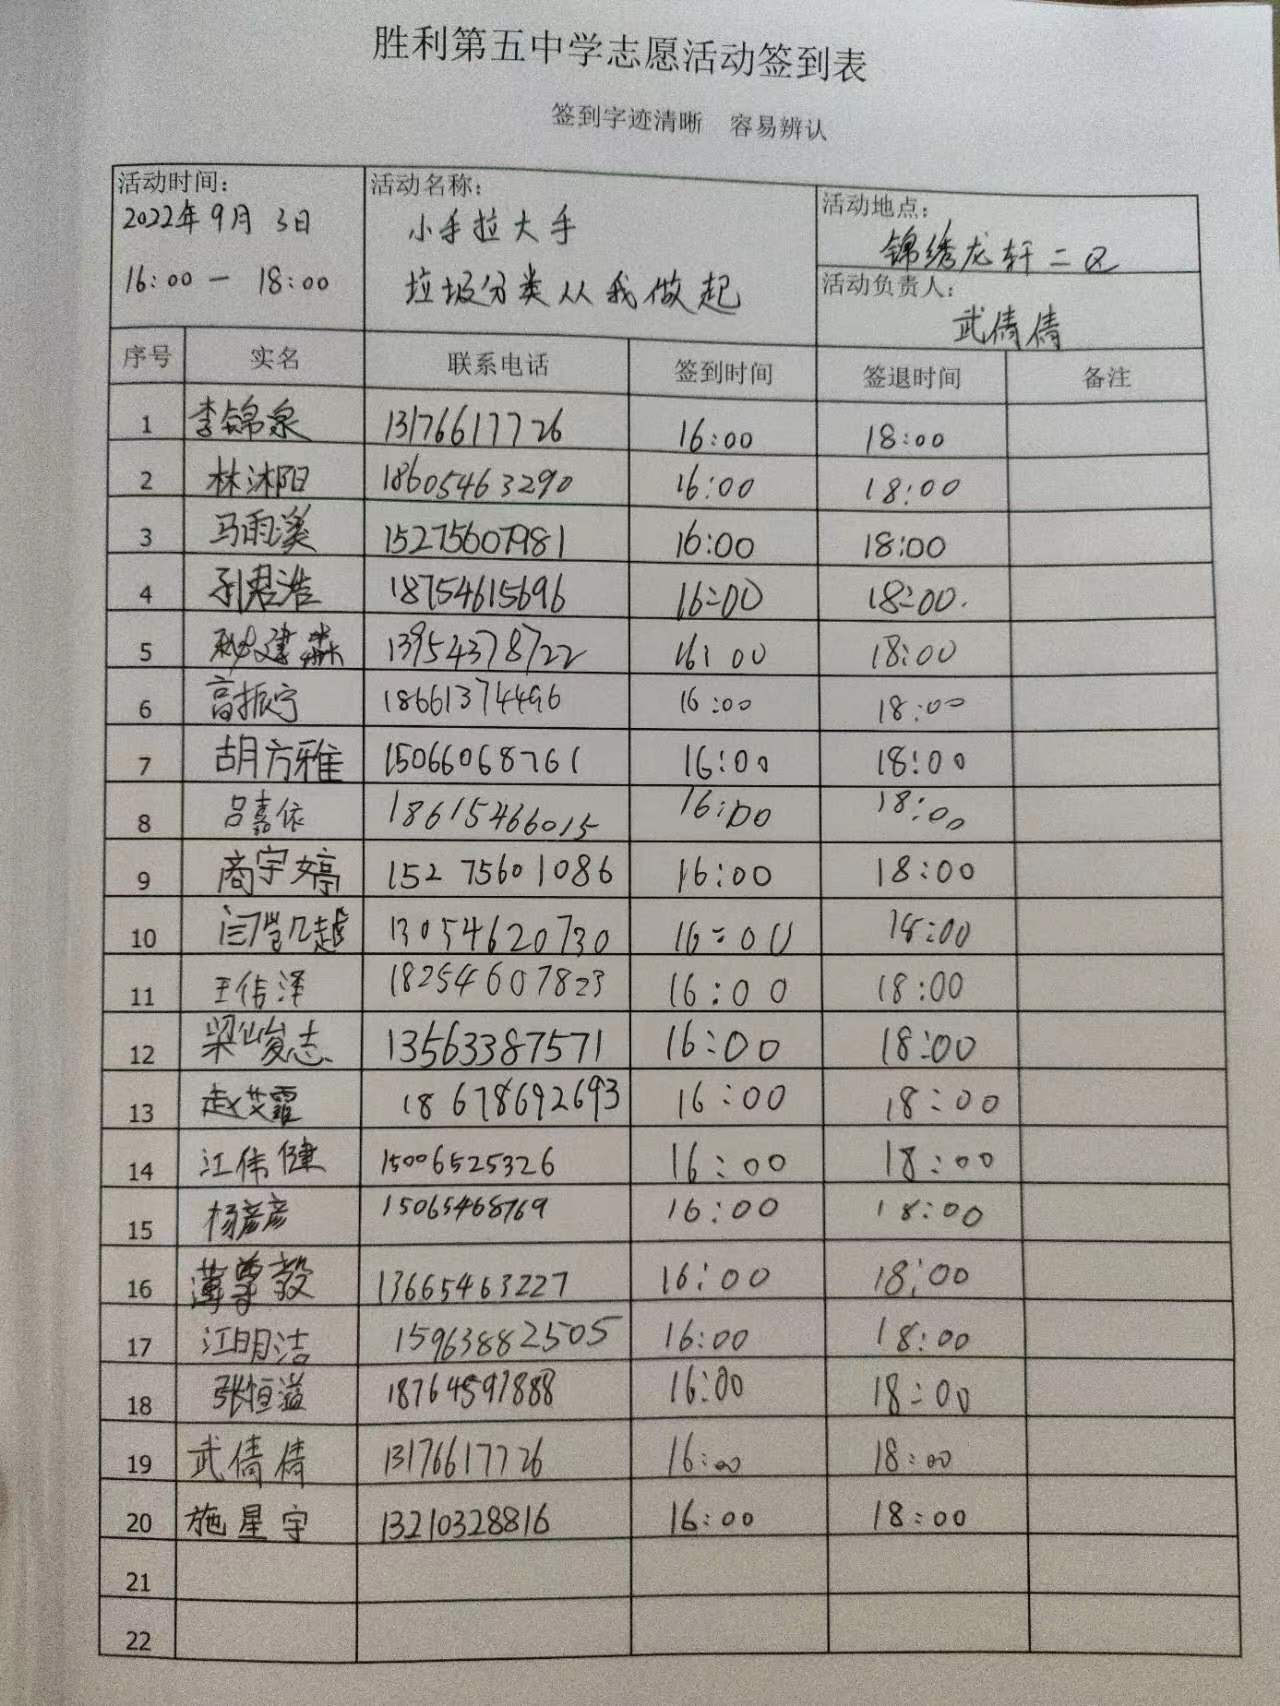 胜利第五中学志愿活动签到表
签到字迹清晰 容易辨认
活动时间: 活动名称: 活动地点:
2022年9月3日 小手拉大手 锦绣龙轩二区
16:00 — 18:00 垃圾分类从我做起 活动负责人:
武倩倩
序号 实名 联系电话 签到时间 签退时间 备注
1 李锦泉 13176617726 16:00 18:00
2 林沐阳 18605463290 16:00 18:00
3 马雨溪 15275607981 16:00 18:00
4 孙君浩 18754615696 16:00 18:00
5 13954378722 16:00 18:00
6 高振宇 18661374496 16:00 18:00
7 胡方雅 15066068761 16:00 18:00
8 吕嘉依 18615466015 16:00 18:00
9 商宇婷 15275601086 16:00 18:00
10 闫凯越 13054620730 16:00 18:00
11 王佶泽 18254607823 16:00 18:00
12 梁峻志 13563387571 16:00 18:00
13 赵艾霏 18678692693 16:00 18:00
14 江伟健 15006525326 16:00 18:00
15 杨彦彦 15065468769 16:00 18:00
16 薄尊毅 13665463227 16:00 18:00
17 江明洁 15963882505 16:00 18:00
18 张恒溢 18764597888 16:00 18:00
19 武倩倩 13176617726 16:00 18:00
20 施星宇 13210328816 16:00 18:00
21
22